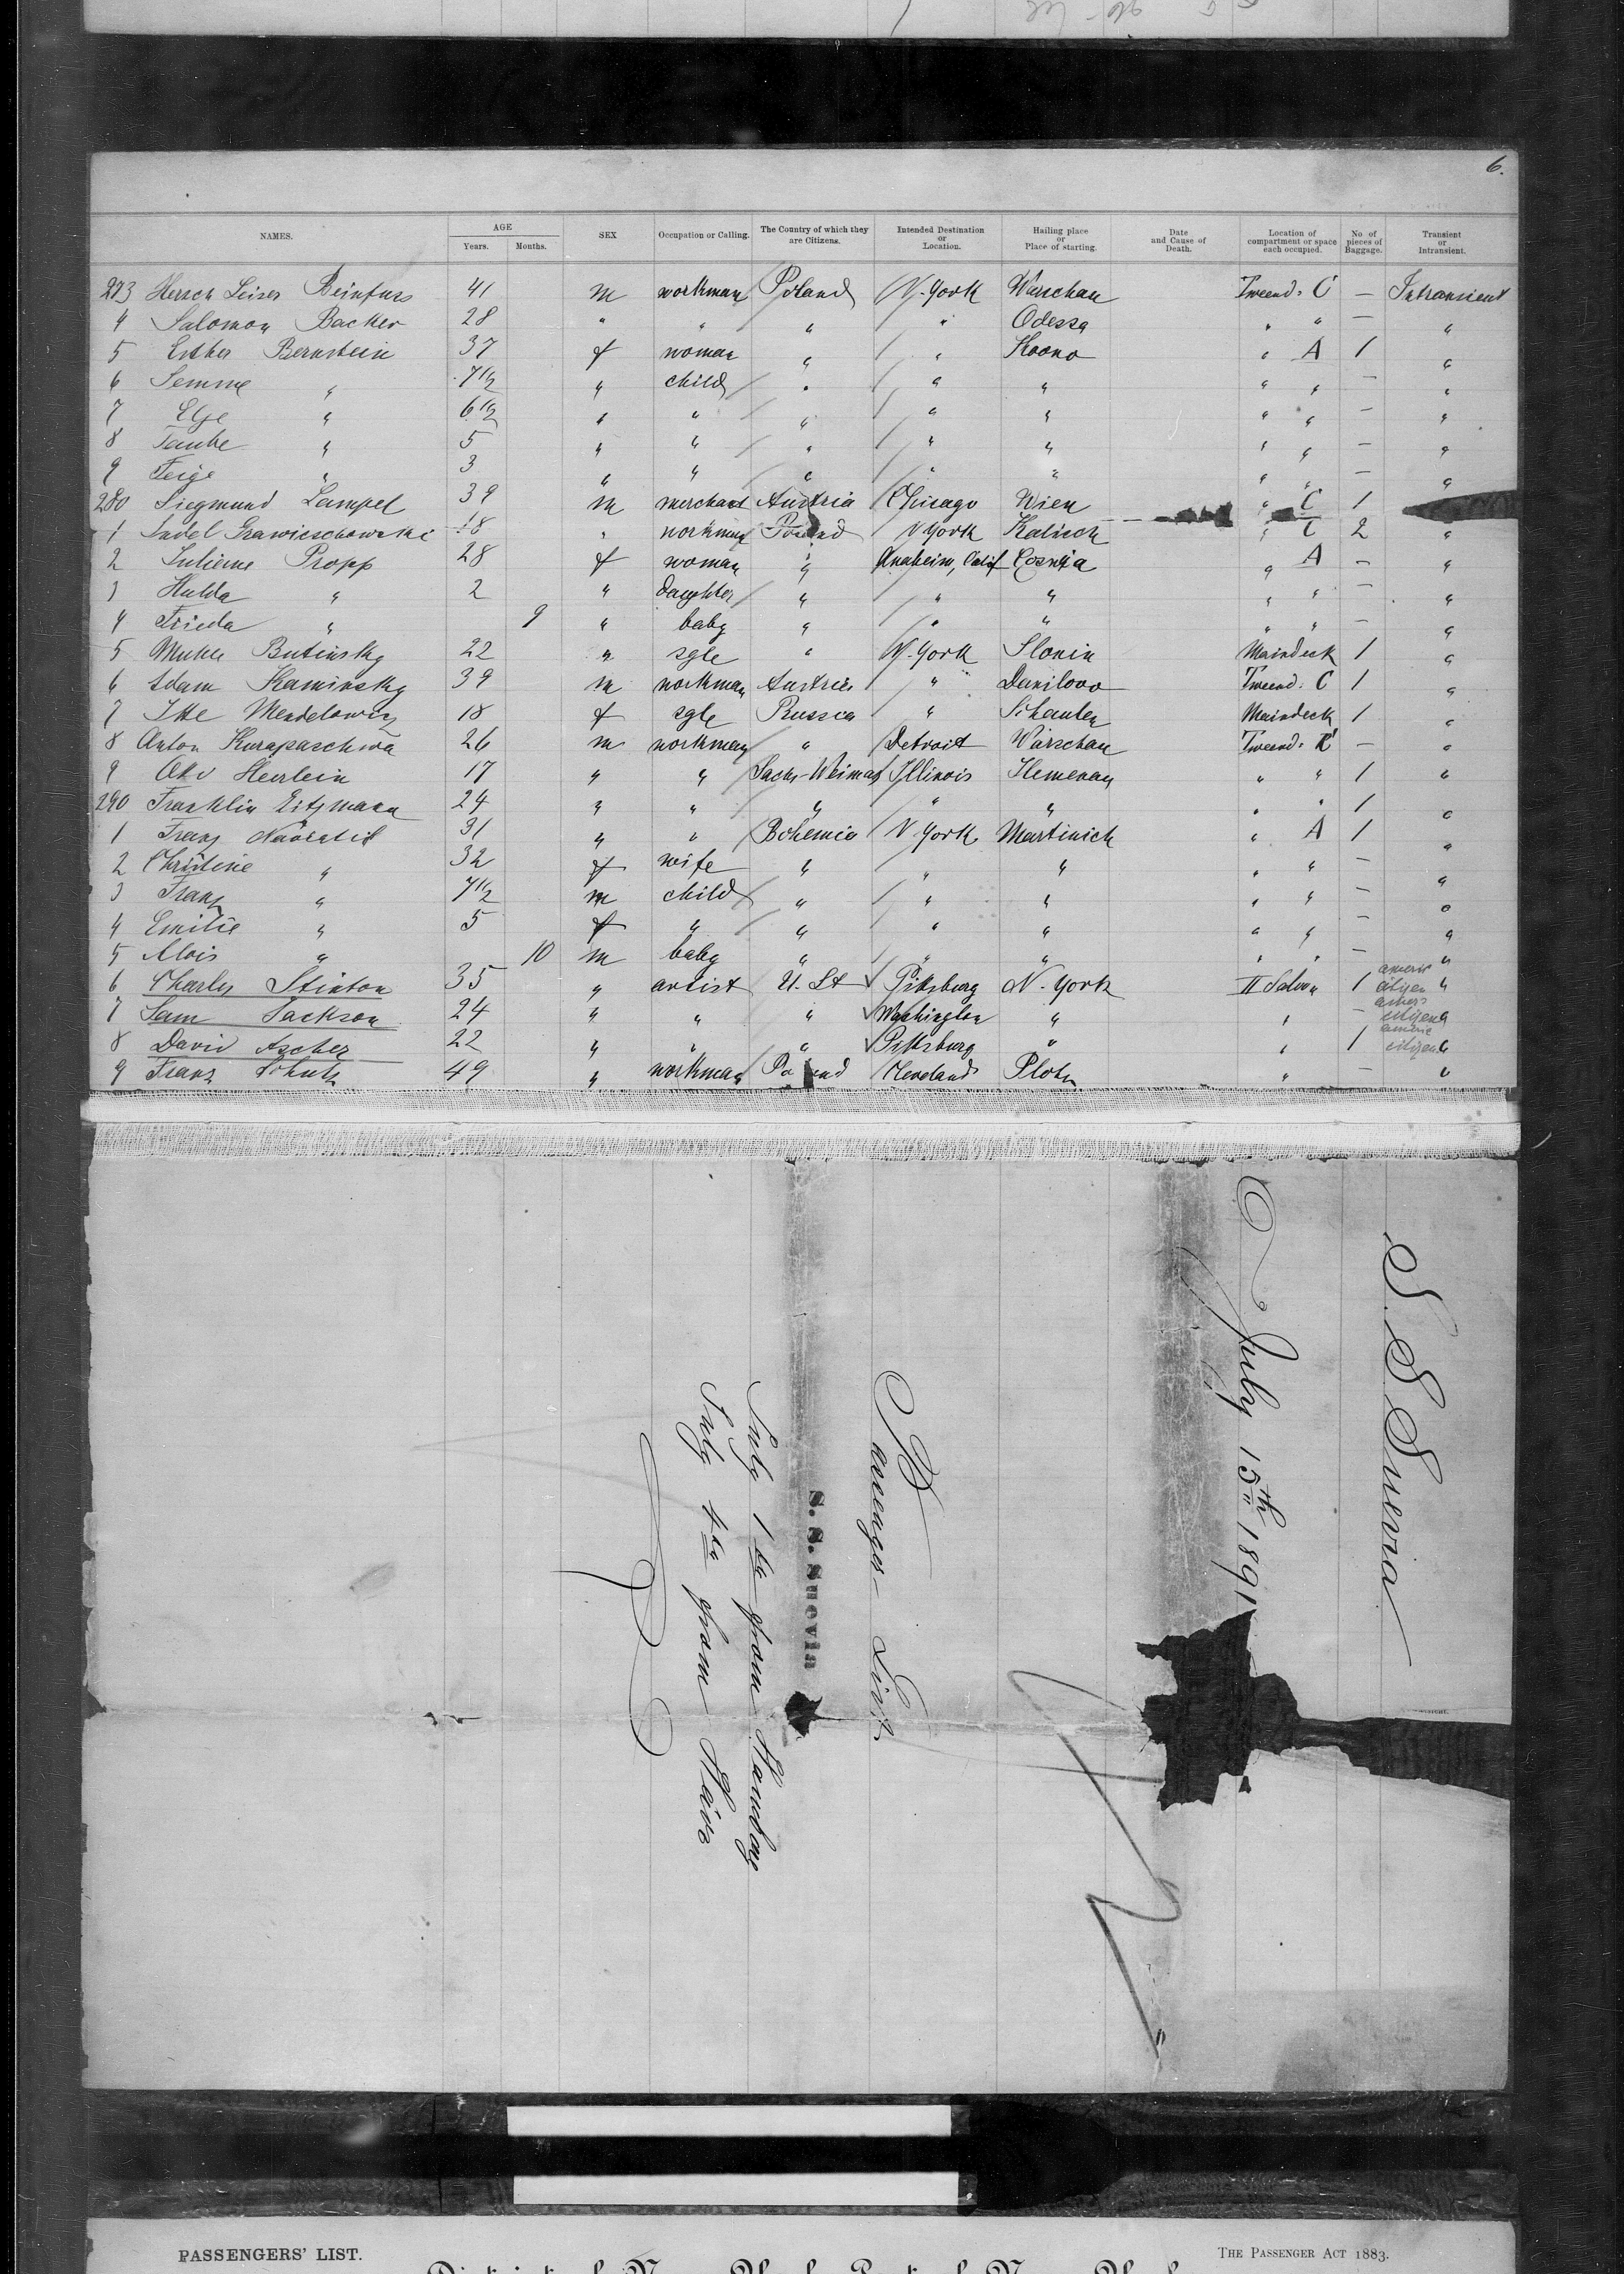 6.
NAMES. AGE Years. Months. SEX Occupation or Calling. The Country of which they are Citizens. Intended Destination or Location. Hailing place or Place of starting. Date and Cause of Death. Location of compartment or space each occupied. No of pieces of Baggage. Transient or Intransient.
273 Hersch Leiser Beinfurs 41 m workman Poland N.-York Warschau Tweend. C — Intransient
4 Salomon Backer 28 " " " " Odessa " " — "
5 Esther Bernstein 37 f woman " " Kowno " A 1 "
6 Semme " 7 1/2 " child " " " " " — "
7 Elge " 6 1/2 " " " " " " " — "
8 Taube " 5 " " " " " " " — "
9 Feige " 3 " " " " " " " — "
280 Siegmund Lampel 39 m merchant Austria Chicago Wien " C 1
1 18 " workman Poland N York Kalisch " C 2 "
2 Juliane Propp 28 f woman " Anaheim, Calif " A — "
3 Hulda " 2 " daughter " " " " " — "
4 Frieda " 9 " baby " " " " " — "
5 Butinsky 22 " sgle " N.-York Slonin Maindeck 1 "
6 Adam Kaminsky 39 m workman Austria " Danilowo Tweend. C 1 "
7 Itte Mendelowicz 18 f sgle Russia " Schaulen Maindeck 1 "
8 Anton 26 m workman " Detroit Warschau Tweend. — "
9 Heerlein 17 " " Sachs-Weimar Illinois Ilmenau " " 1 "
290 Franklin Eitzmann 24 " " " " " " " 1 "
1 Franz 31 " " Bohemia N. York Martinich " A 1 "
2 Christine " 32 f wife " " " " " — "
3 Franz " 7 1/2 m child " " " " " — "
4 Emilie " 5 f " " " " " " — "
5 Alois " 10 m baby " " " " " — "
6 Charles Stinton 35 " artist U. St Pittsburg N.-York II Saloon 1 americ citizen "
7 Sam Jackson 24 " " " Washington " " — citizen "
8 David Ascher 22 " " " Pittsburg " " 1 americ citizen "
9 Franz Schulz 49 " workman Poland Cleveland " — "
S. S. Suevia
July 15th 1891
Passenger-List
S. S. Suevia
July 1st from Hamburg
July 4th from Havre
PASSENGERS' LIST.
THE PASSENGER ACT 1883.